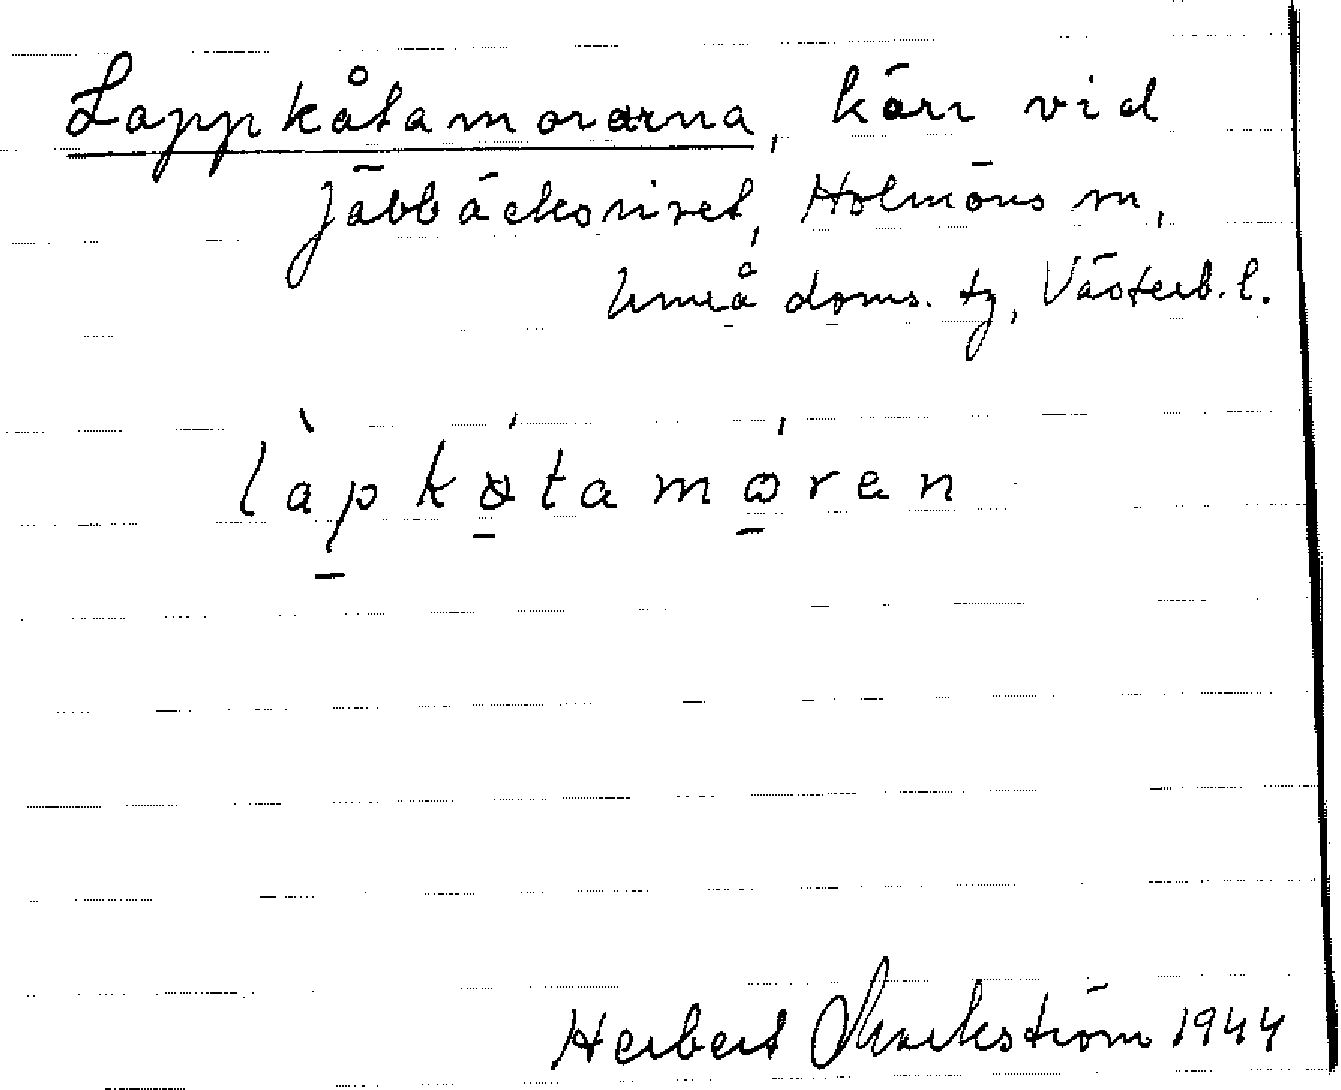 Lappkåtamorarna, kärr vid
Jäbbäcksrivet, Holmöns m,
Umeå doms. tg, Västerb. l.
làpkǿtamóren
Herbert Markström 1944